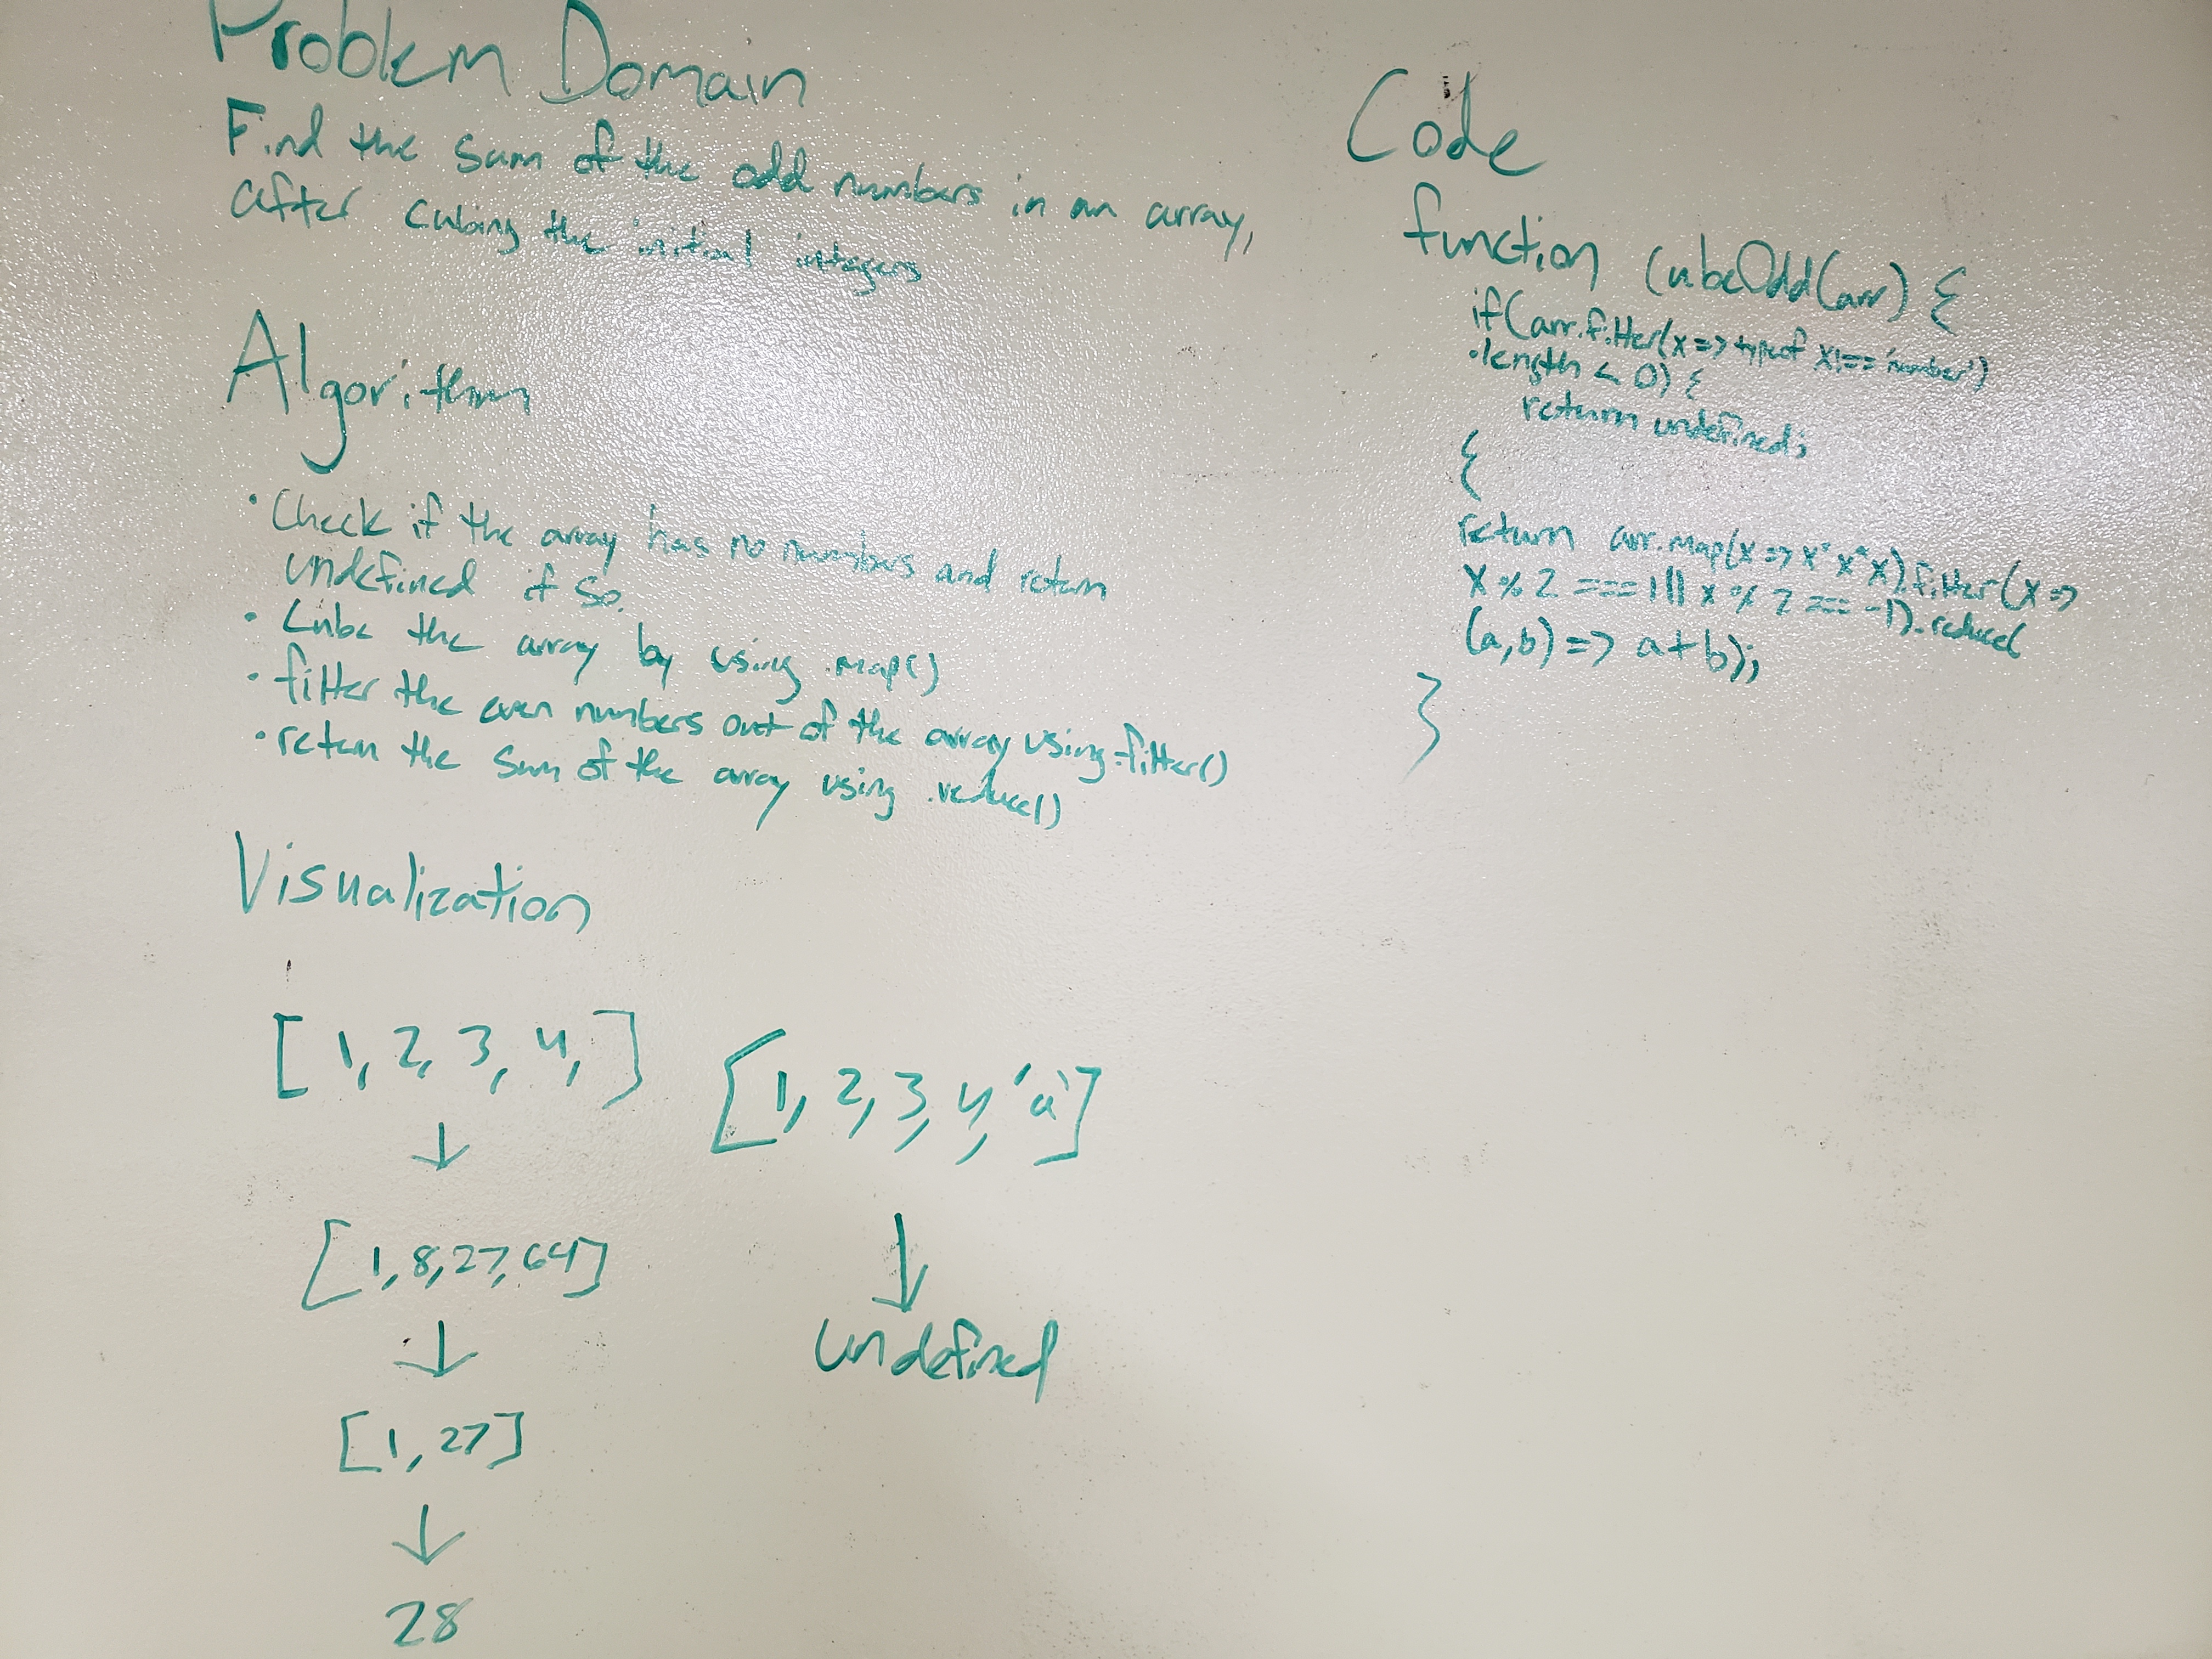 Problem Domain
Find the sum of the odd numbers in an array,
after cubing the initial integers
Algorithm
• Check if the array has no numbers and return
undefined if so.
• Cube the array by using .map()
• filter the even numbers out of the array using .filter()
• return the sum of the array using .reduce()
Visualization
[ 1, 2, 3, 4, ]
↓
[1,8,27,64]
↓
[1, 27]
↓
28
[1, 2, 3, 4, 'a']
↓
undefined
Code
function cubeOdd(arr) {
if(arr.filter(x => typeof x !== 'number')
.length < 0) {
return undefined;
{
return arr.map(x => x*x*x).filter(x =>
x % 2 === 1 || x % 2 === -1).reduce(
(a,b) => a+b);
}